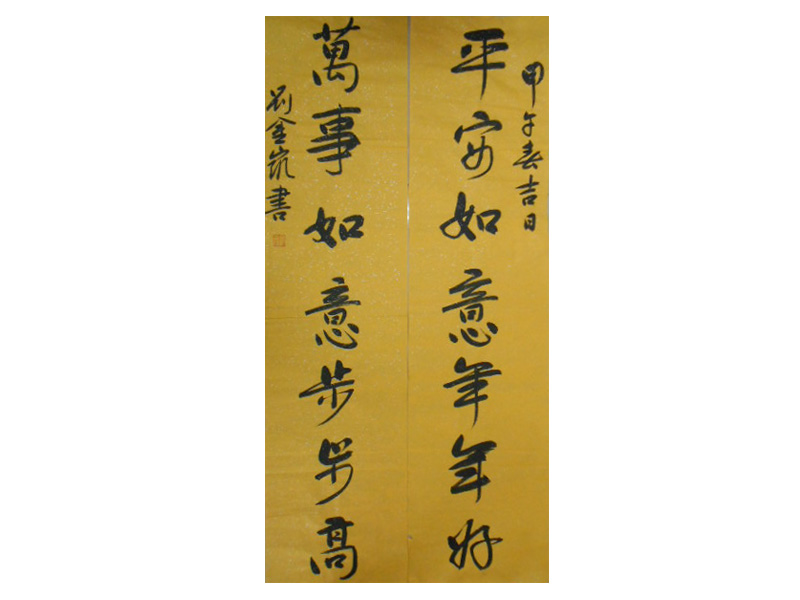 甲午春吉日
平安如意年年好
萬事如意步步高
劉金嵐書